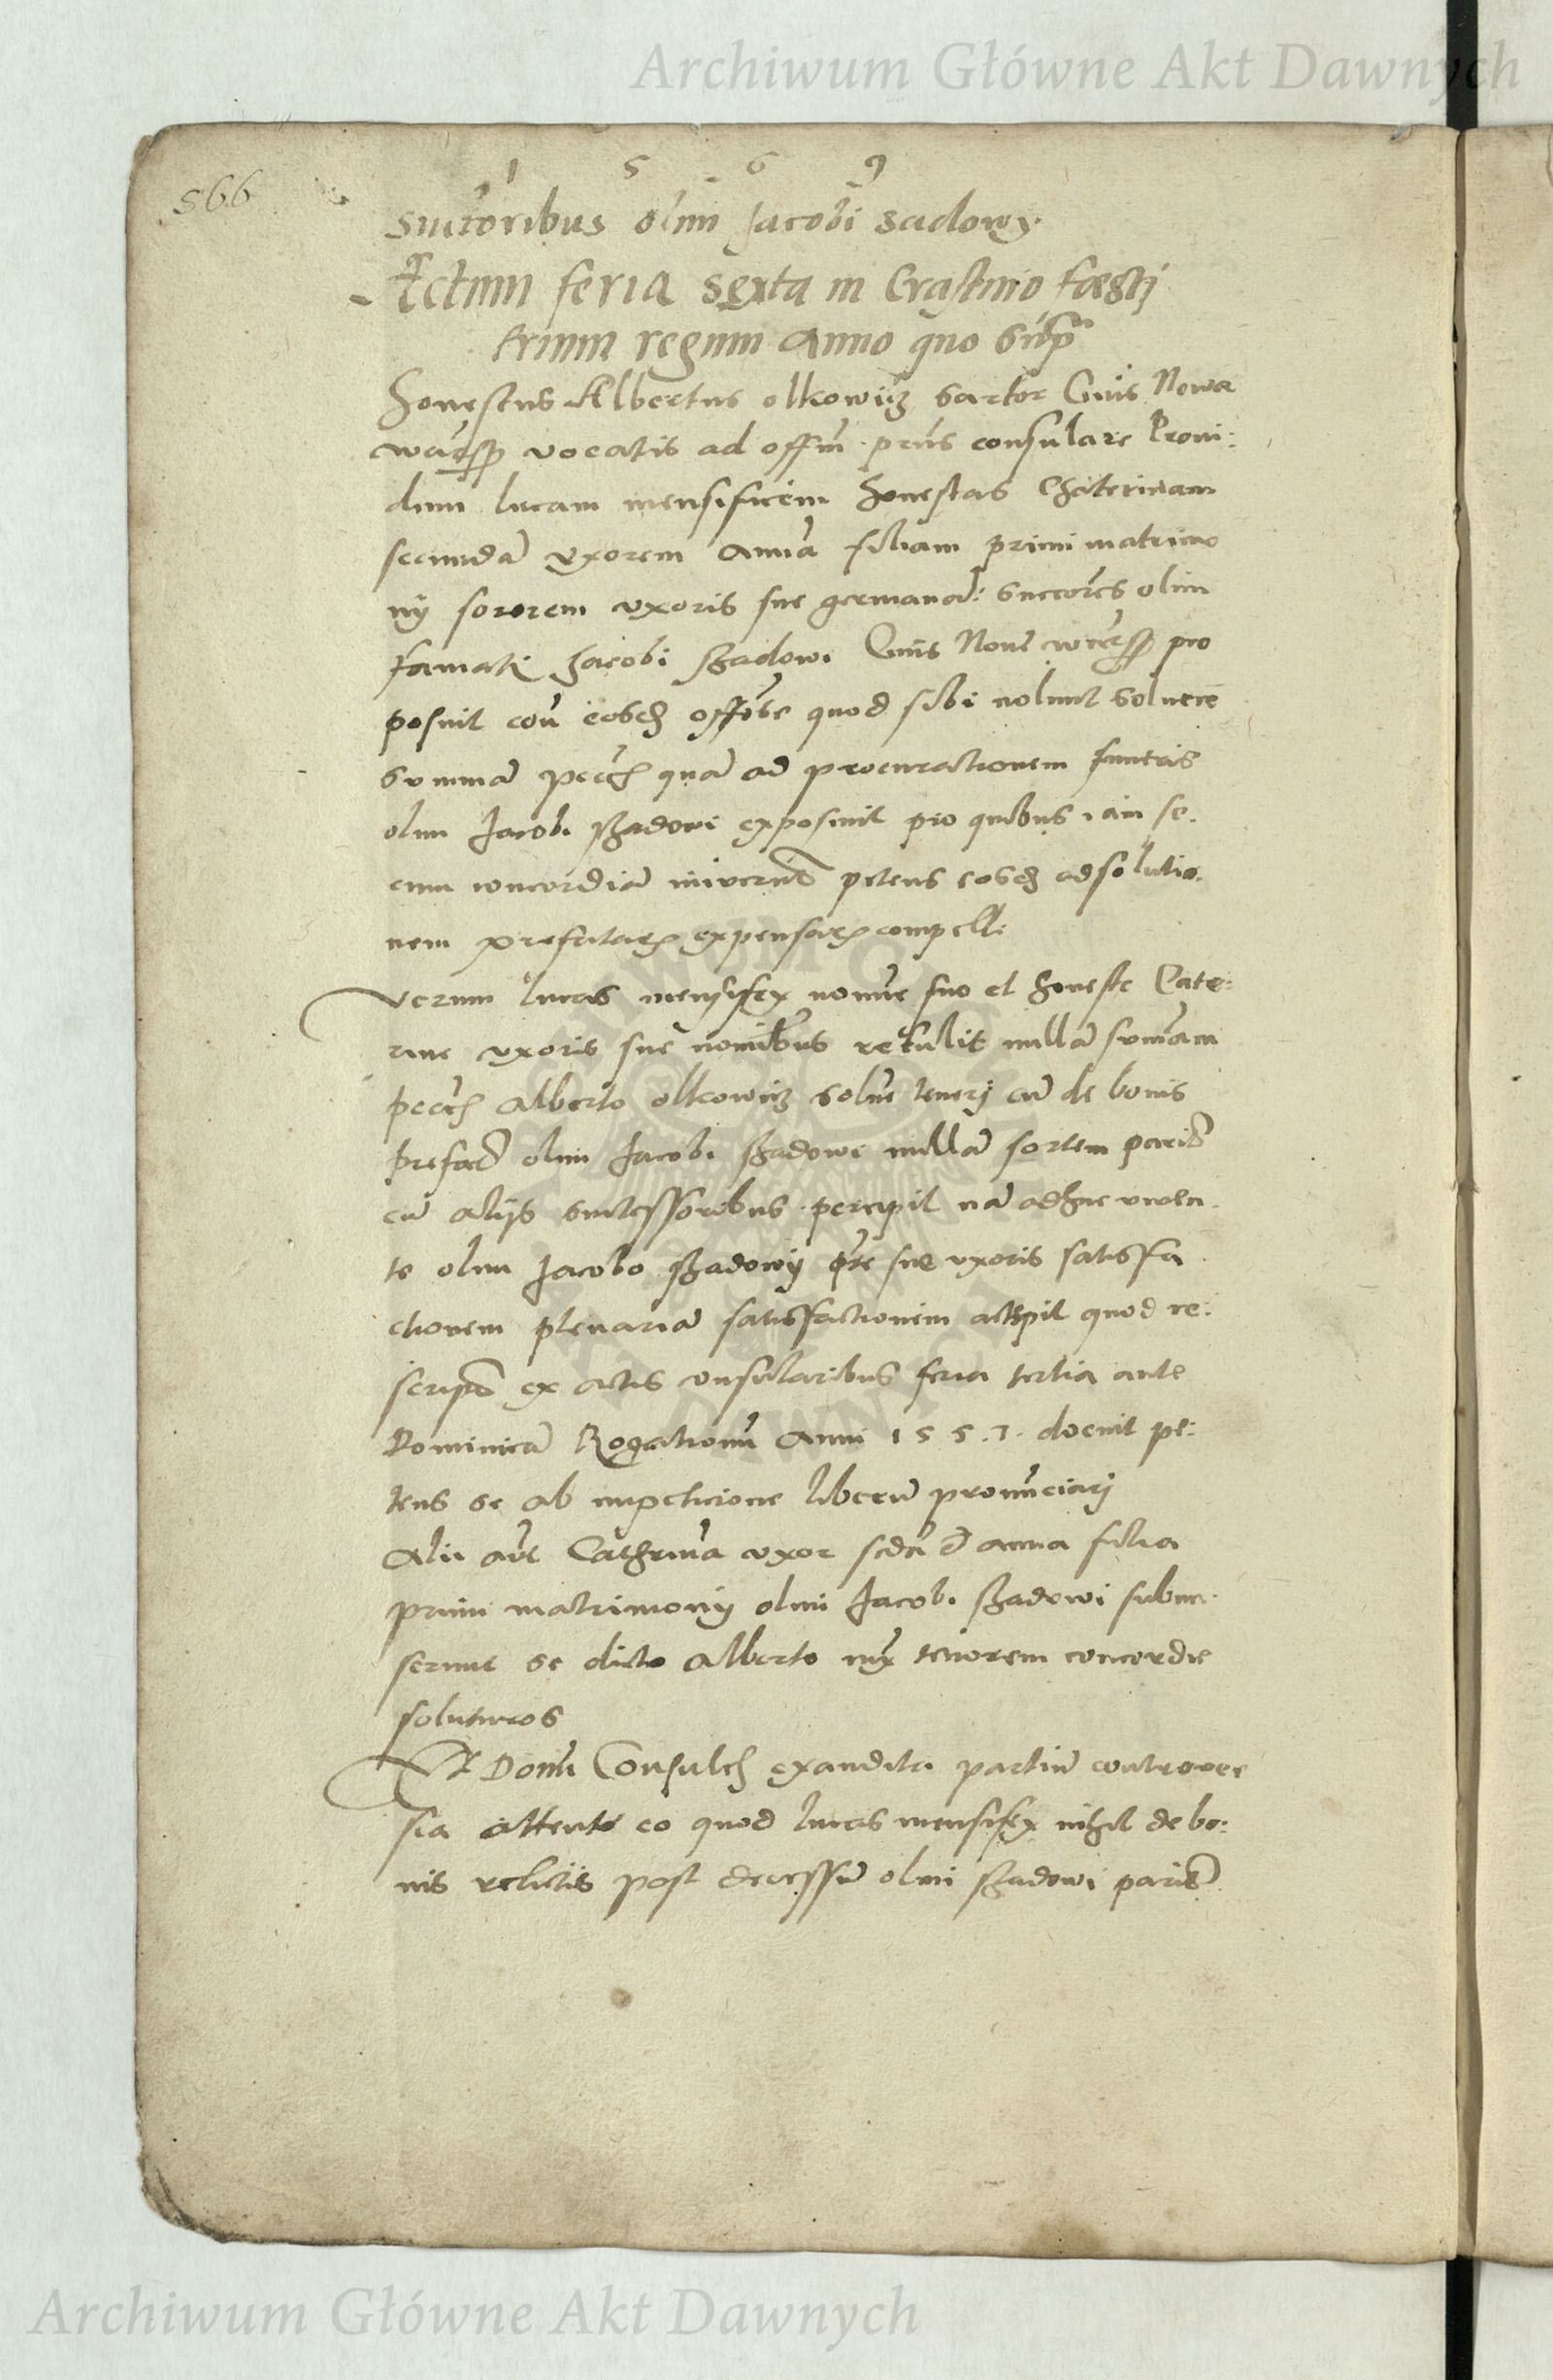 Archiwum Główne Akt Dawnych
566
1 5 6 9
olim Jacobi Sadowy.
Actum feria sexta in Crastino faesti
trium regum Anno quo supra
Honestus Albertus olkowicz sartor Civis Nowa
vocatis ad offm. prns consulare Provi:
dum lucam mensificem honestas Chaterinam
secundā uxorem Annā filiam primi matrimo
ny sororem uxoris sue germanā: succores olim
famati Jacobi szadowi Civis Nove pro
posuit eosdē quod sibi nolunt solvere
summā quā ad procurationem funeris
olim Jacobi szadowi exposuit pro quibus iam se.
cum concordiā petens eosdē ad solutio.
nem prefatarū expensarū compelli
verum lucas mensifex nomine suo et honeste Cate:
rine uxoris sue nomibus retulit nullā sumam
Alberto olkowicz solvere teneri cū de bonis
olim Jacobi szadowi nullā sortem pariter
cū alijs successoribus percepit nā adhuc viven.
te olim Jacobo szadowy pre sue uxoris satisfa
ctionem plenariā satisfactionem accepit quod re:
scripto ex actis consularibus feria tertia ante
Dominicā Rogationū Anni 1 5 5 .7. docuit pe:
tens se ab impeticione liberū pronunciari
Alii aut Cathrina uxor Anna filia
primi matrimony olim Jacobi szadowi submi.
serunt se dicto Alberto iux tenorem concordie
soluturos
Et Domi Consules exaudita partiū controver
sia attento eo quod lucas mensifex nihil de bo:
nis relictis post decessum olim szadowi pariter
Archiwum Główne Akt Dawnych